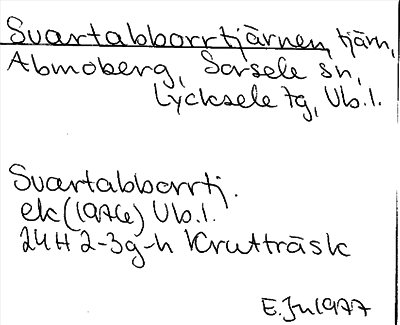 Svartabborrtjärnen, tjärn,
Abmoberg, Sorsele sn,
Lycksele tg, Vb.l.
Svartabborrtj.
ek (1976) Vb.l.
24H 2-3g-h Krutträsk
E.Ju 1977